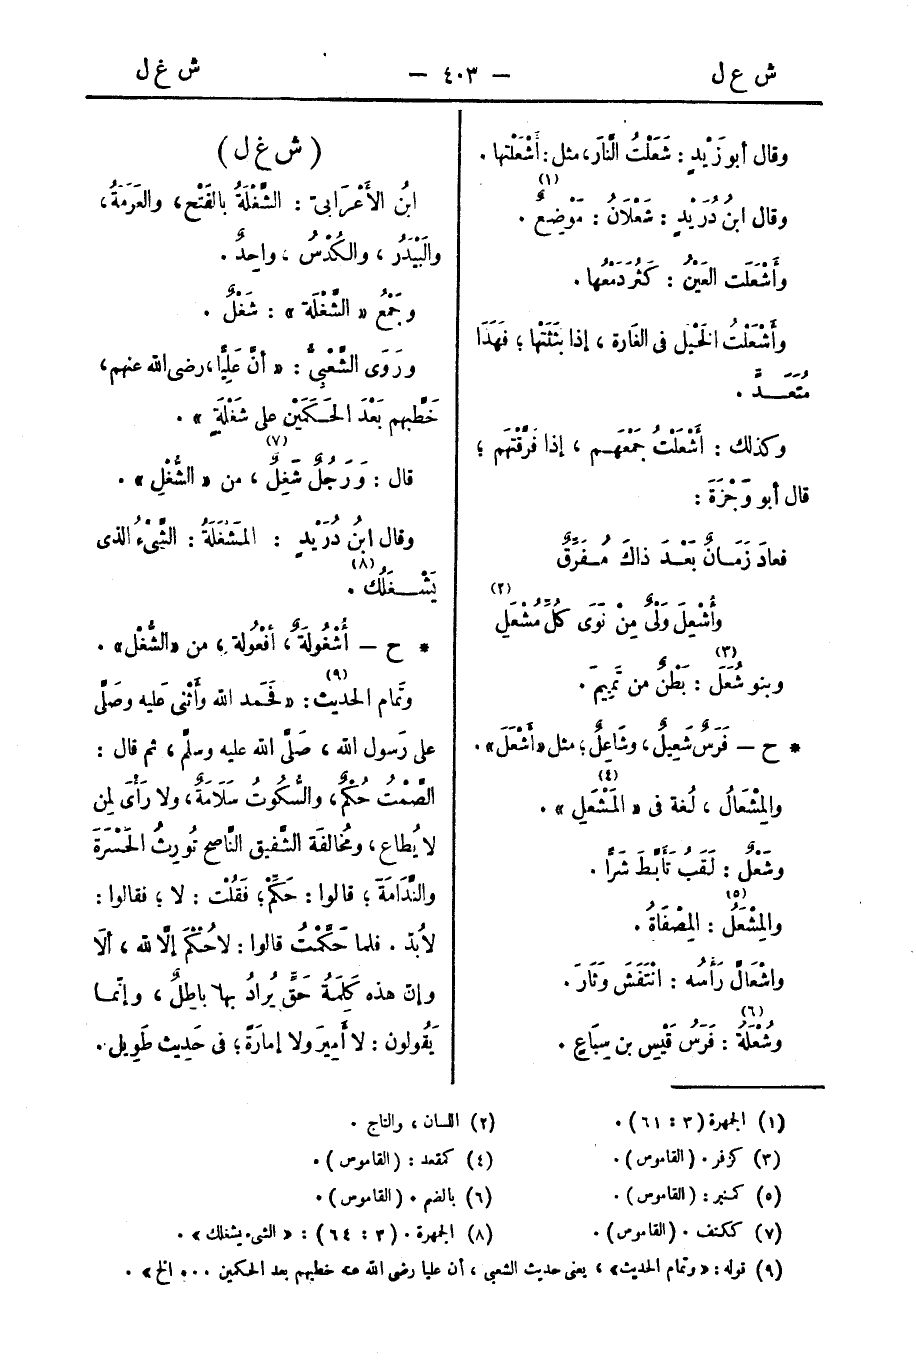 ش ع ل — ٤٠٣ — ش غ ل
وقال أبو زَيْدٍ : شَعَلْتُ النَّارَ، مثل : أَشْعَلْتها .
وقال ابنُ دُرَيْدٍ : شَعْلَانُ (١) : مَوْضِعٌ .
وأَشْعَلَت العَيْنُ : كَثُر دَمْعُها .
وأَشْعَلْتُ الخَيْلَ فى الغَارة ، إذا بَثَثْتَها ؛ فَهَذَا
مُتَعَــدٍّ .
وكذلك : أَشْعَلْتُ جَمْعَهـم ، إذا فَرَّقْتَهم ؛
قال أبو وَجْزَةَ :
فعادَ زَمَـانٌ بَعْـدَ ذاكَ مُـفَرِّقٌ
وأُشْعِلَ وَلْىٌ مِنْ نَوًى كُلَّ مُشْعَلِ (٢)
وبنو شُعَلَ (٣) : بَطْنٌ من تَمِيمَ .
* ح — فَرَسٌ شَعِيلٌ ، وشَاعِلٌ ؛ مثل «أَشْعَلَ» .
والمِشْعَالُ ، لُغة فى « المَشْعَلِ (٤) » .
وشَعْلٌ : لَقَبُ تَأَبَّطَ شَرًّا .
والمِشْعَلُ (٥) : المِصْفَاةُ .
واشْعَالَّ رَأْسُه : انْتَفَشَ وثَارَ .
وشُعْلَةُ (٦) : فَرَسُ قَيْسِ بن سِبَاعٍ .
( ش غ ل )
ابنُ الأَعْرَابىّ : الشَّغْلَةُ بالفَتْح ، والعَرَمَةُ ،
والبَيْدَرُ ، والكُدْسُ ، واحِدٌ .
وجَمْعُ « الشَّغْلَة » : شَغْلٌ .
ورَوَى الشَّعْبِىُّ : « أنَّ عَلِيًّا ، رضى الله عنهم ،
خَطَبَهم بَعْدَ الحَـكَمَيْن على شَغْلَةٍ » .
قال : وَرَجُلٌ شَغِلٌ (٧) ، من « الشُّغْلِ » .
وقال ابنُ دُرَيْدٍ : المَشْغَلَةُ : الشَّىْءُ الذى
يَشْــغَلُك (٨) .
* ح — أُشْغُولَةٌ ، أُفْعُولة ، من «الشُّغْل» .
وتَمام الحَديث (٩) : « فَحَمد الله وأَثْنى عَليه وصَلَّى
على رَسول الله ، صَلَّى الله عليه وسلَّم ، ثم قال :
الصَّمْتُ حُكْمٌ ، والسُّكوتُ سَلَامَةٌ ، ولا رَأْىَ لِمن
لا يُطاع ، ومُخالفة الشَّفيق النَّاصح تُورِثُ الحَسْرَةَ
والنَّدَامَةَ ؛ قالوا : حَكِّمْ ؛ فَقُلْت : لا ؛ فقالوا :
لابُدّ . فلما حَكَّمْتُ قالوا : لاحُكْمَ إلّا لله ، أَلَا
وإنّ هذه كَلِمَةُ حَقٍّ يُرادُ بها باطِلٌ ، وإنّمـا
يَقُولون : لا أَمِيرَ ولا إمَارَةَ ؛ فى حَديث طَوِيل .
(١) الجمهرة (٣ : ٦١) .
(٢) اللسان ، والتاج .
(٣) كزفر . (القاموس) .
(٤) كمقعد : (القاموس) .
(٥) كمنبر : (القاموس) .
(٦) بالضم . (القاموس) .
(٧) ككتف . (القاموس) .
(٨) الجمهرة . (٣ : ٦٤) : « الشىء يشغلك » .
(٩) قوله : « وتمام الحديث » ، يعنى حديث الشعبى ، أن عليا رضى الله عنه خطبهم بعد الحكمين ... الخ » .